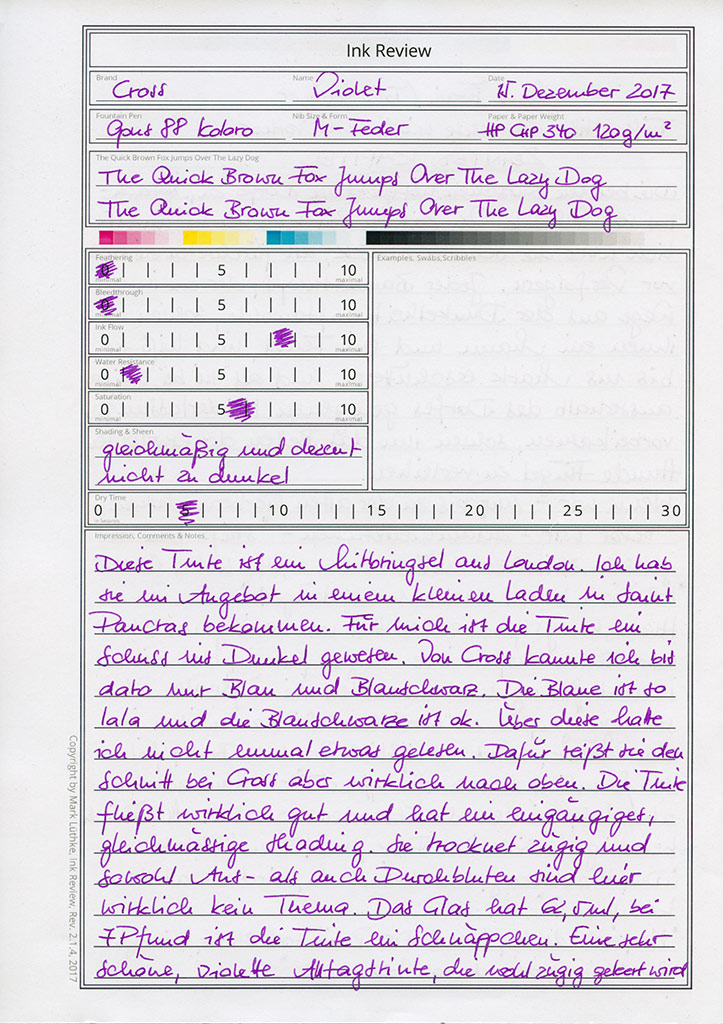 Ink Review
Brand Cross Name Violet Date 15. Dezember 2017
Fountain Pen Opus 88 Koloro Nib Size & Form M-Feder Paper & Paper Weight HP CHP 340 120g/m²
The Quick Brown Fox Jumps Over The Lazy Dog
The Quick Brown Fox Jumps Over The Lazy Dog
The Quick Brown Fox Jumps Over The Lazy Dog
Feathering
0 5 10
minimal maximal
Bleedthrough
0 5 10
minimal maximal
Ink Flow
0 5 10
minimal maximal
Water Resistance
0 5 10
minimal maximal
Saturation
0 5 10
minimal maximal
Shading & Sheen
gleichmäßig und dezent
nicht zu dunkel
Examples, Swabs,Scribbles
Dry Time
0 5 10 15 20 25 30
in Seconds
Impression, Comments & Notes
Diese Tinte ist ein Mitbringsel aus London. Ich hab
sie im Angebot in einem kleinen Laden in Saint
Pancras bekommen. Für mich ist die Tinte ein
Schuss ins Dunkel gewesen. Von Cross kannte ich bis
dato nur Blau und Blauschwarz. Die Blaue ist so
lala und die Blauschwarze ist ok. Über diese hatte
ich nicht einmal etwas gelesen. Dafür reißt sie den
Schnitt bei Cross aber wirklich nach oben. Die Tinte
fließt wirklich gut und hat ein eingängiges,
gleichmässige Shading. Sie trocknet zügig und
sowohl Aus- als auch Durchbluten sind hier
wirklich kein Thema. Das Glas hat 62,5ml, bei
7Pfund ist die Tinte ein Schnäppchen. Eine sehr
schöne, violette Alltagstinte, die wohl zügig geleert wird
Copyright by Mark Lüthke, Ink Review, Rev. 2.1.4, 2017